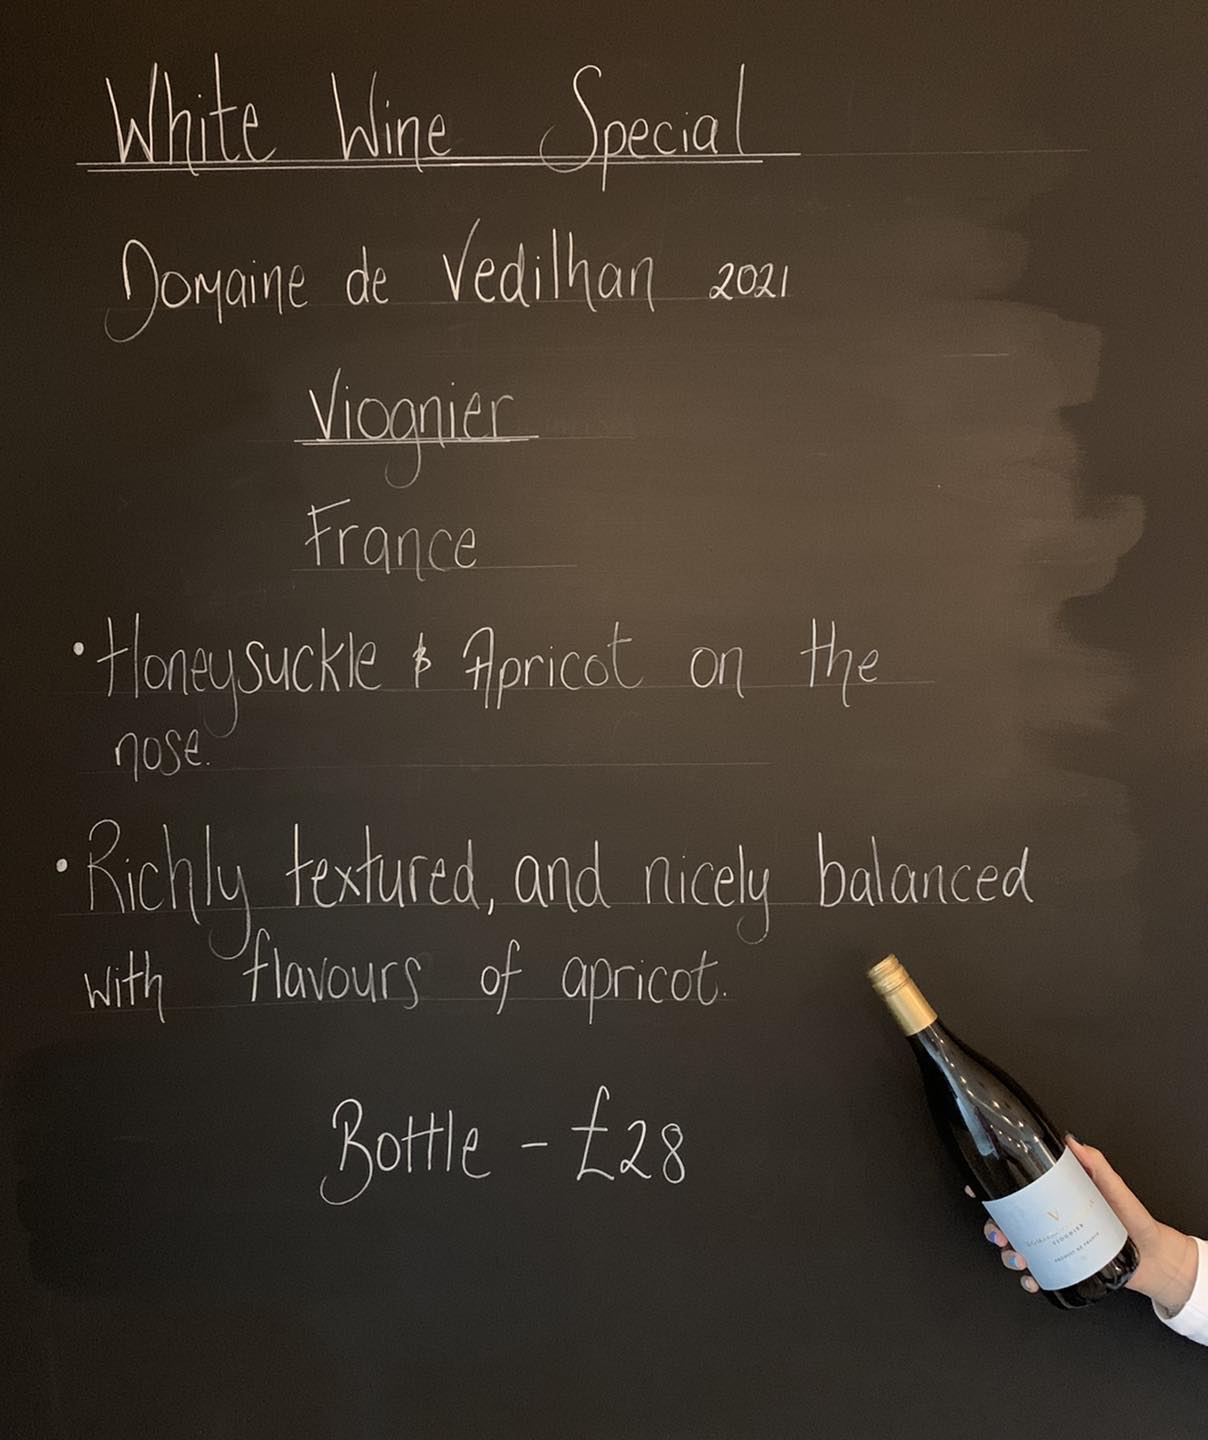 White Wine Special
Domaine de Vedilhan 2021
Viognier
France
• Honeysuckle & Apricot on the
nose.
• Richly textured, and nicely balanced
with flavours of apricot.
Bottle - £28
V
VIOGNIER
PRODUCT OF FRANCE